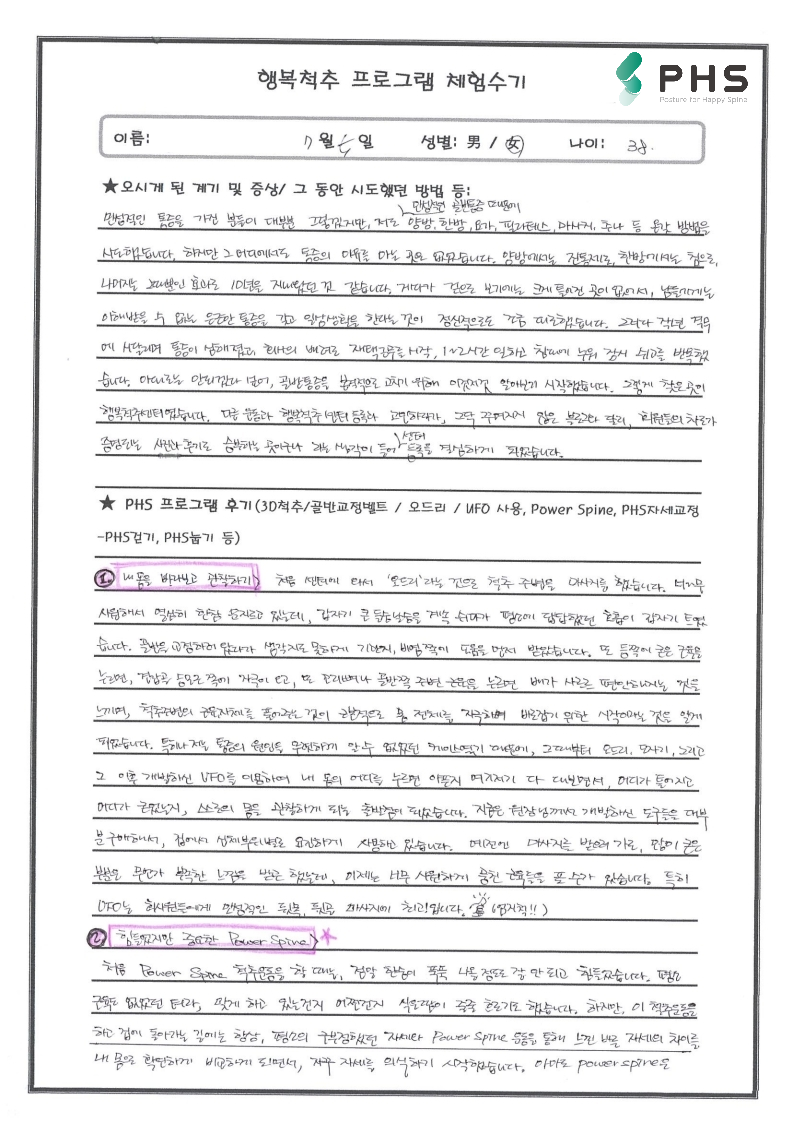 행복척추 프로그램 체험수기
PHS
Posture for Happy Spine
이름: 7월 일 성별: 男 / 女 나이: 38.
★오시게 된 계기 및 증상/ 그 동안 시도했던 방법 등:
만성적인 골반통증 때문에
만성적인 통증을 가진 분들이 대부분 그렇겠지만, 저도 양방, 한방, 요가, 필라테스, 마사지, 추나 등 온갖 방법을
시도했습니다. 하지만 그 어디에서도 통증의 이유를 아는 곳은 없었습니다. 양방에서는 진통제로, 한방에서는 침으로,
나아지는 효과로 10년을 지내왔던 것 같습니다. 게다가 겉으로 보기에는 크게 틀어진 곳이 없어서, 남들에게는
이해받을 수 없는 은근한 통증을 갖고 일상생활을 한다는 것이 정신적으로도 가끔 했습니다. 그러다 작년 격무
에 시달리며 통증이 심해졌고, 회사의 배려로 재택근무를 시작, 1~2시간 일하고 침대에 누워 잠시 쉬고를 반복했
습니다. 이대로는 안되겠다 싶어, 골반통증을 본격적으로 고치기 위해 이것저것 알아보기 시작했습니다. 그렇게 찾은 곳이
행복척추센터였습니다. 다른 운동과 행복척추센터 등록과 고민하다가, 그닥 꾸며지지 않은 블로그와 달리, 회원들의 차도가
증명되는 사진과 후기로 승부하는 곳이구나 라는 생각이 들어 센터 등록을 결심하게 되었습니다.
★ PHS 프로그램 후기(3D척추/골반교정벨트 / 오드리 / UFO 사용, Power Spine, PHS자세교정
-PHS걷기, PHS눕기 등)
1. 내 몸을 바라보고 관찰하기
처음 센터에 와서 '오드리'라는 것으로 척추 주변을 마사지를 했습니다. 너무
시원해서 열심히 한참 문지르고 있는데, 갑자기 큰 들숨날숨을 계속 쉬다가 평소에 답답했던 호흡이 갑자기 트였
습니다. 골반을 교정하러 왔다가 생각지도 못하게 기관지, 비염쪽이 도움을 먼저 받았습니다. 또 등쪽에 굳은 근육을
누르면, 명갑골 쪽에 자극이 오고, 또 꼬리뼈나 골반쪽 주변 근육을 누르면 배가 사르르 편안해지는 것을
느끼며, 척추주변의 근육자체를 풀어주는 것이 근본적으로 몸 전체를 자극하며 바로잡기 위한 시작이라는 것을 알게
되었습니다. 특히나 저는 통증의 원인을 무엇인지 알 수 없었던 케이스였기 때문에, 그때부터 오드리, 모자기, 그리고
그 이후 개발하신 UFO를 이용하여 내 몸의 어디를 누르면 아픈지 여기저기 다 대보면서, 어디가 틀어지고
어디가 굳었는지, 스스로의 몸을 관찰하게 되는 출발점이 되었습니다. 지금은 원장님께서 개발하신 도구들을 대부
분 구매해서, 집에서 신체부위별로 요긴하게 사용하고 있습니다. 예전엔 마사지를 받으러 가도, 많이 굳은
부분은 무언가 부족한 느낌을 받곤 했는데, 이제는 너무 시원하게 뭉친 근육들을 풀 수가 있습니다. 특히
UFO는 회사원들에게 만성적인 뒷목, 뒷골 마사지에 최고입니다. (엄지척!!)
2. 힘들었지만 중요한 Power Spine ★
처음 Power Spine 척추운동을 할 때는, 정말 한숨이 푹푹 나올정도로 잘 안되고 힘들었습니다. 평소
근육도 없었던 터라, 맞게 하고 있는건지 어쩐건지 식은땀이 줄줄 흐르기도 했습니다. 하지만, 이 척추운동을
하고 집에 돌아가는 길에는 항상, 평소의 구부정했던 자세와 Power Spine 운동을 통해 느낀 바른 자세의 차이를
내 몸으로 확연하게 비교하게 되면서, 자꾸 자세를 의식하기 시작했습니다. 아마도 power spine은